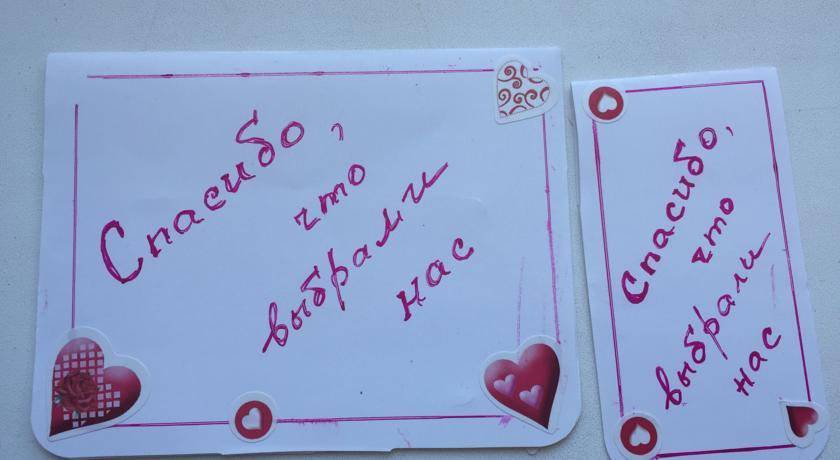 Спасибо,
что
выбрали
нас
Спасибо,
что
выбрали
нас